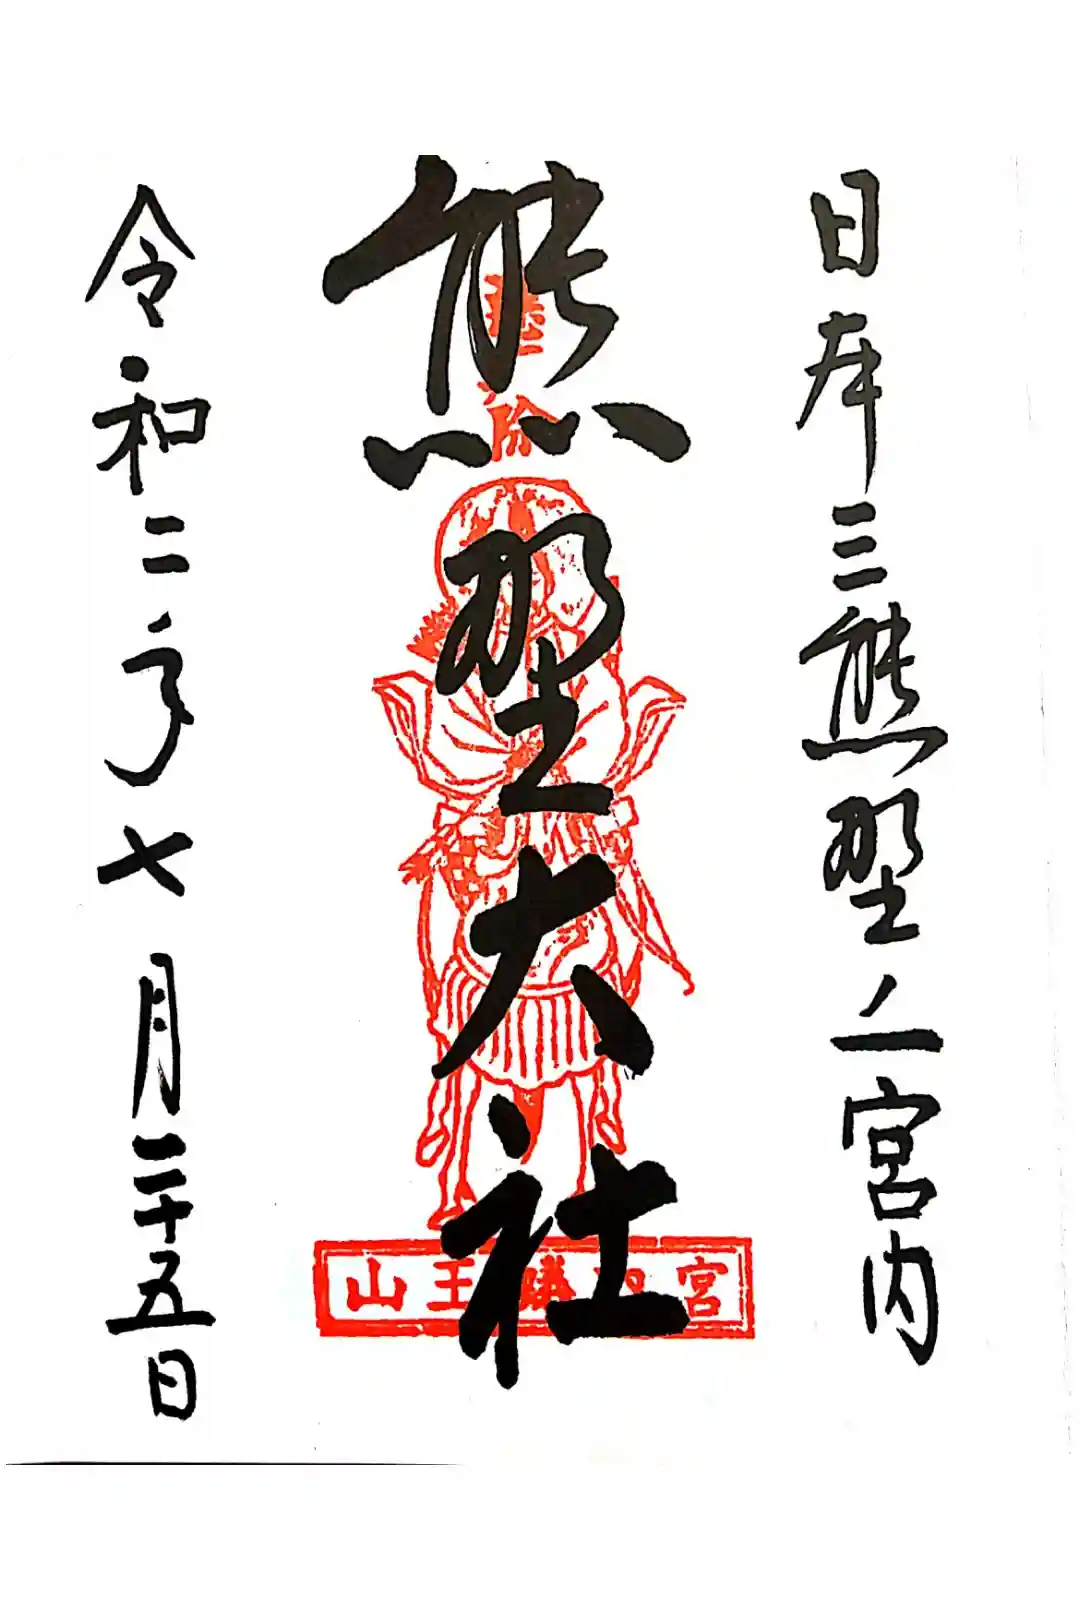 日本三熊野ノ一宮内
熊野大社
令和二年七月二十五日
山王
宮